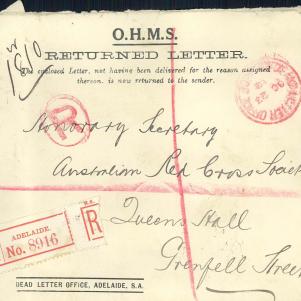 O.H.M.S.
RETURNED LETTER.
The enclosed Letter, not having been delivered for the reason assigned
thereon, is now returned to the sender.
1810
R
Honorary Secretary
Australian Red Cross Society
Queens Hall
Grenfell Street
ADELAIDE.
R
No. 8916
DEAD LETTER OFFICE, ADELAIDE, S.A.